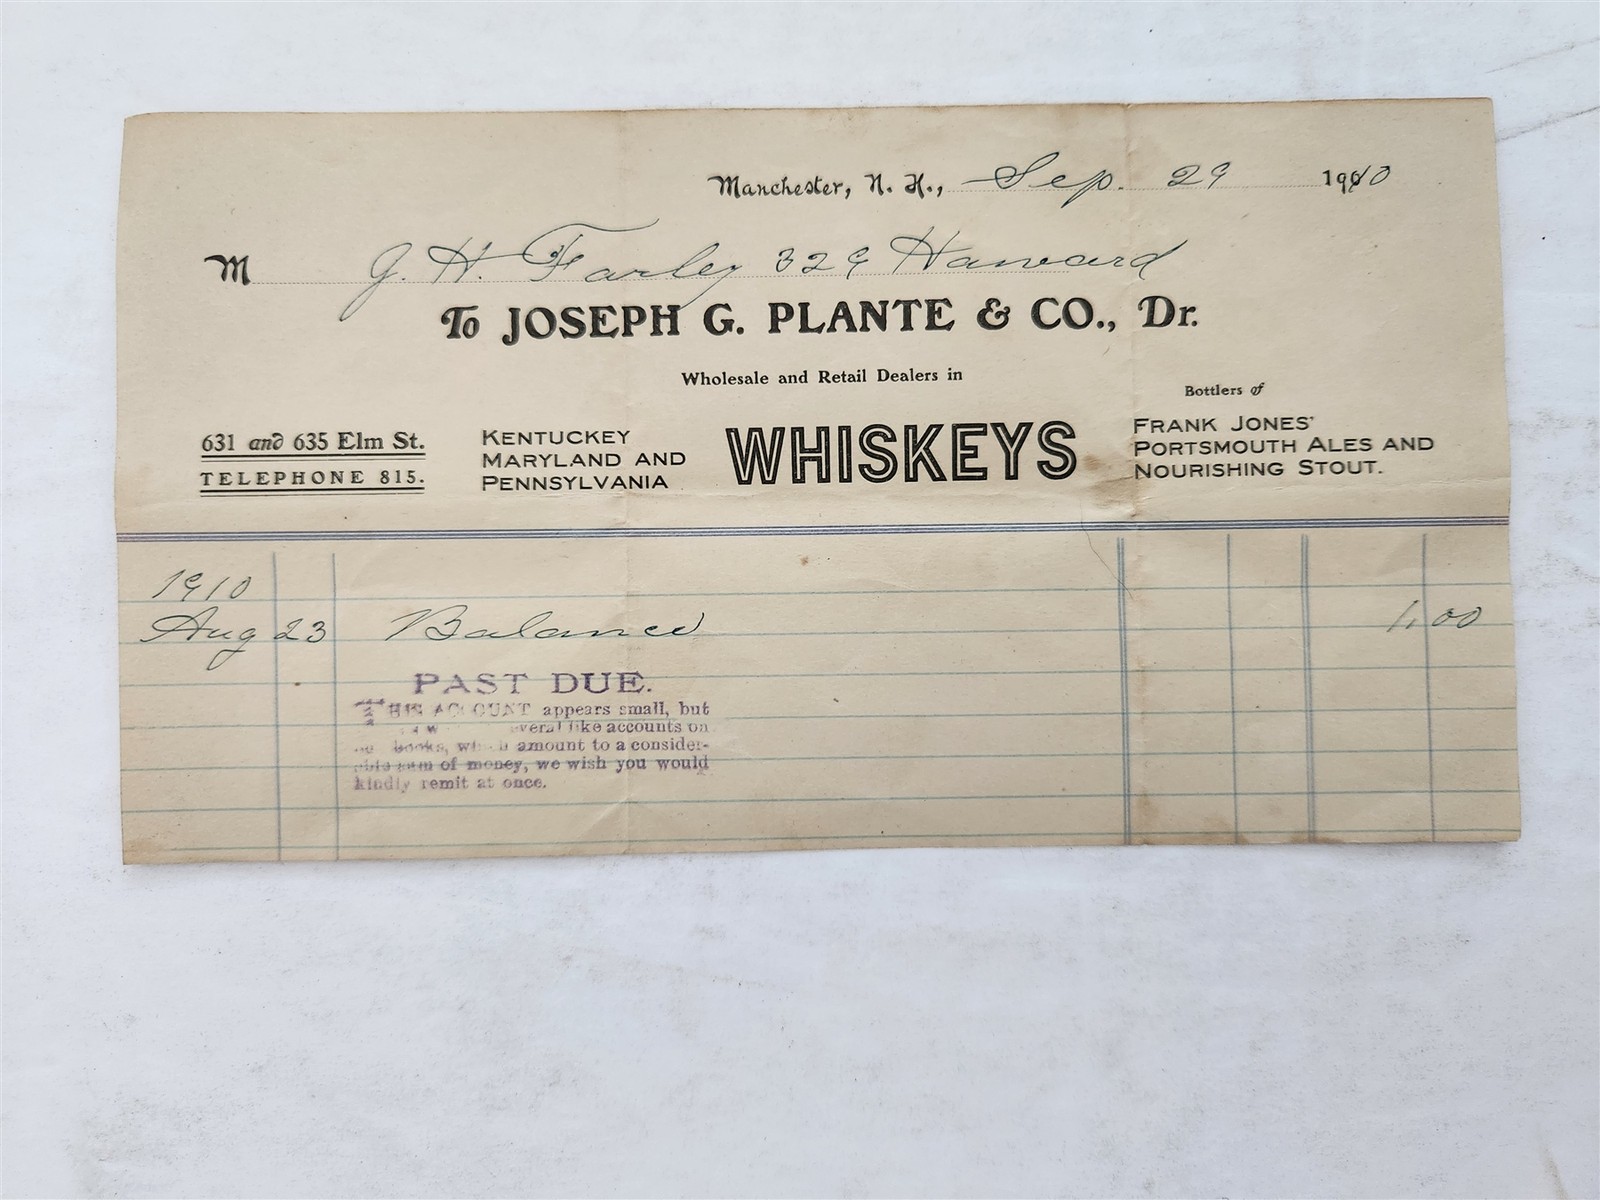 Manchester, N. H., Sep. 29 1910
M J. H. Farley 329 Harvard
To JOSEPH G. PLANTE & CO., Dr.
Wholesale and Retail Dealers in
631 and 635 Elm St.
TELEPHONE 815.
KENTUCKEY
MARYLAND AND
PENNSYLVANIA
WHISKEYS
Bottlers of
FRANK JONES'
PORTSMOUTH ALES AND
NOURISHING STOUT.
1910
Aug 23 Balance 1.00
PAST DUE.
THIS ACCOUNT appears small, but
like accounts on
books, which amount to a consider-
able sum of money, we wish you would
kindly remit at once.